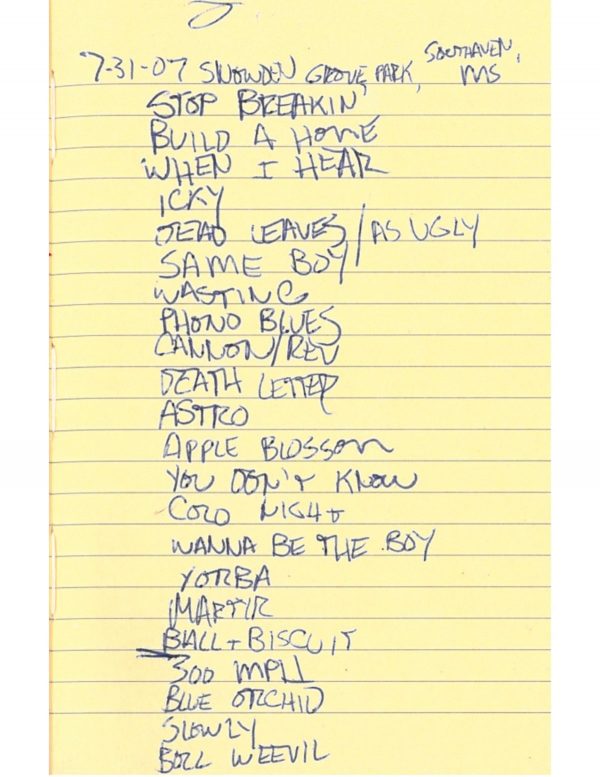 7-31-07 SNOWDEN GROVE PARK, SOUTHAVEN, MS
STOP BREAKIN'
BUILD A HOME
WHEN I HEAR
ICKY
DEAD LEAVES / AS UGLY
SAME BOY
WASTING
PHONO BLUES
CANNON/REV
DEATH LETTER
ASTRO
APPLE BLOSSOM
YOU DON'T KNOW
COLD NIGHT
WANNA BE THE BOY
YORBA
MARTYR
BALL + BISCUIT
300 MPH
BLUE ORCHID
SLOWLY
BOLL WEEVIL